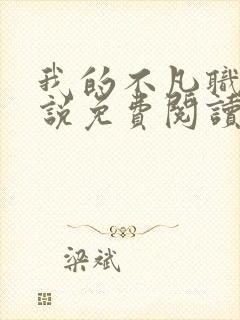 我的不凡職
說免費閱讀
梁斌